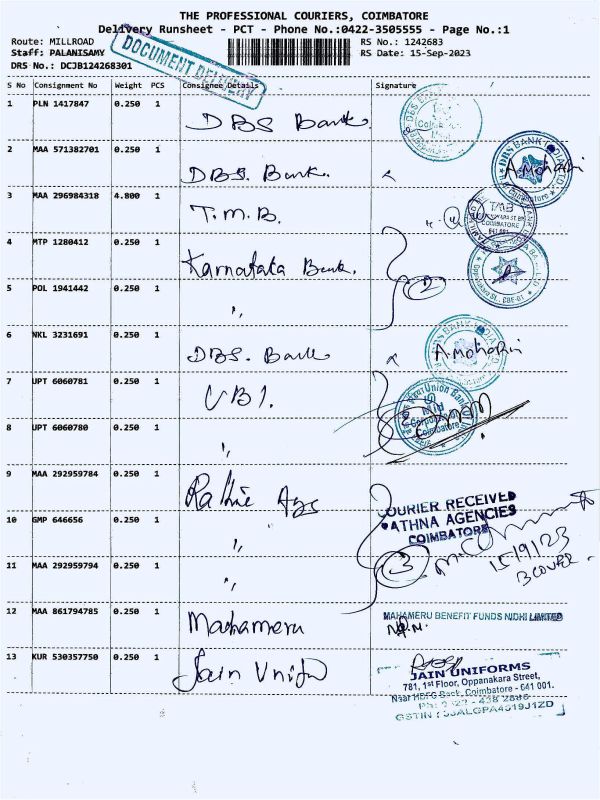 THE PROFESSIONAL COURIERS, COIMBATORE
Delivery Runsheet - PCT - Phone No.:0422-3505555 - Page No.:1
Route: MILLROAD
RS No.: 1242683
Staff: PALANISAMY
RS Date: 15-Sep-2023
DRS No.: DCJB124268301
DOCUMENT DELIVERY
S No Consignment No Weight PCS Consignee Details Signature
1 PLN 1417847 0.250 1 DBS Bank.
2 MAA 571382701 0.250 1 DBS. Bank. A.Mohari
3 MAA 296984318 4.800 1 T.M.B. TMB COIMBATORE
4 MTP 1280412 0.250 1 Karnataka Bank.
5 POL 1941442 0.250 1 " 2
6 NKL 3231691 0.250 1 DBS. Bank A.Mohari
7 UPT 6060781 0.250 1 UBI. Union Bank
8 UPT 6060780 0.250 1 " Coimbatore
9 MAA 292959784 0.250 1 Rathie Ags
COURIER RECEIVED
10 GMP 646656 0.250 1 " ATHNA AGENCIES
COIMBATORE
11 MAA 292959794 0.250 1 " 3 15/9/23
BCOVER
12 MAA 861794785 0.250 1 Mahameru MAHAMERU BENEFIT FUNDS NIDHI LIMITED
13 KUR 530357750 0.250 1 Jain Unifo
JAIN UNIFORMS
781, 1st Floor, Oppanakara Street,
Near HDFC Bank, Coimbatore - 641 001.
GSTIN : 33ALGPA4519J1ZD